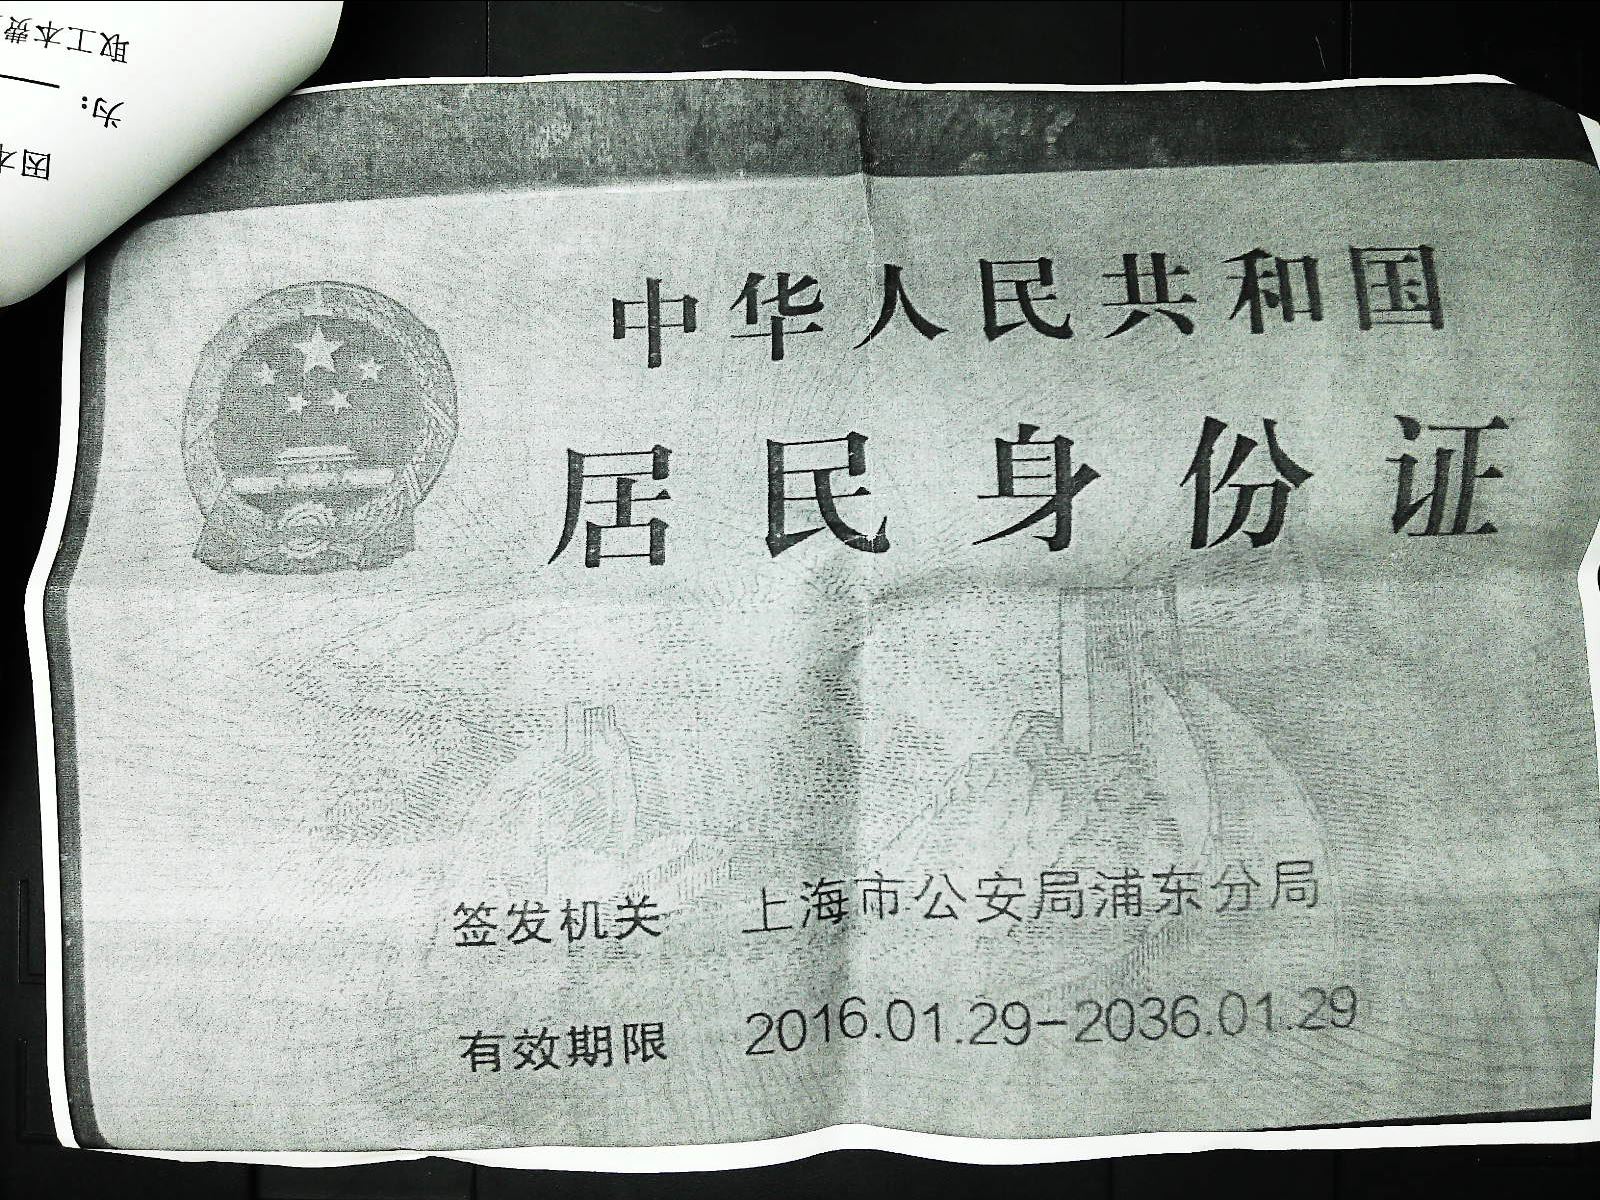 取工本费
为：
因本
中华人民共和国
居民身份证
签发机关 上海市公安局浦东分局
有效期限 2016.01.29-2036.01.29